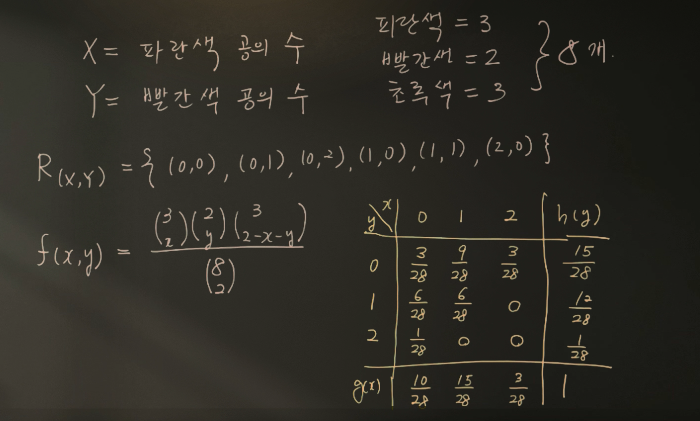 X = 파란색 공의 수
Y = 빨간색 공의 수
파란색 = 3
빨간색 = 2
초록색 = 3
} 8개.
R(X,Y) = { (0,0), (0,1), (0,2), (1,0), (1,1), (2,0) }
f(x,y) = (3 x)(2 y)(3 2-x-y) / (8 2)
y\x 0 1 2 h(y)
0 3/28 9/28 3/28 15/28
1 6/28 6/28 0 12/28
2 1/28 0 0 1/28
g(x) 10/28 15/28 3/28 1